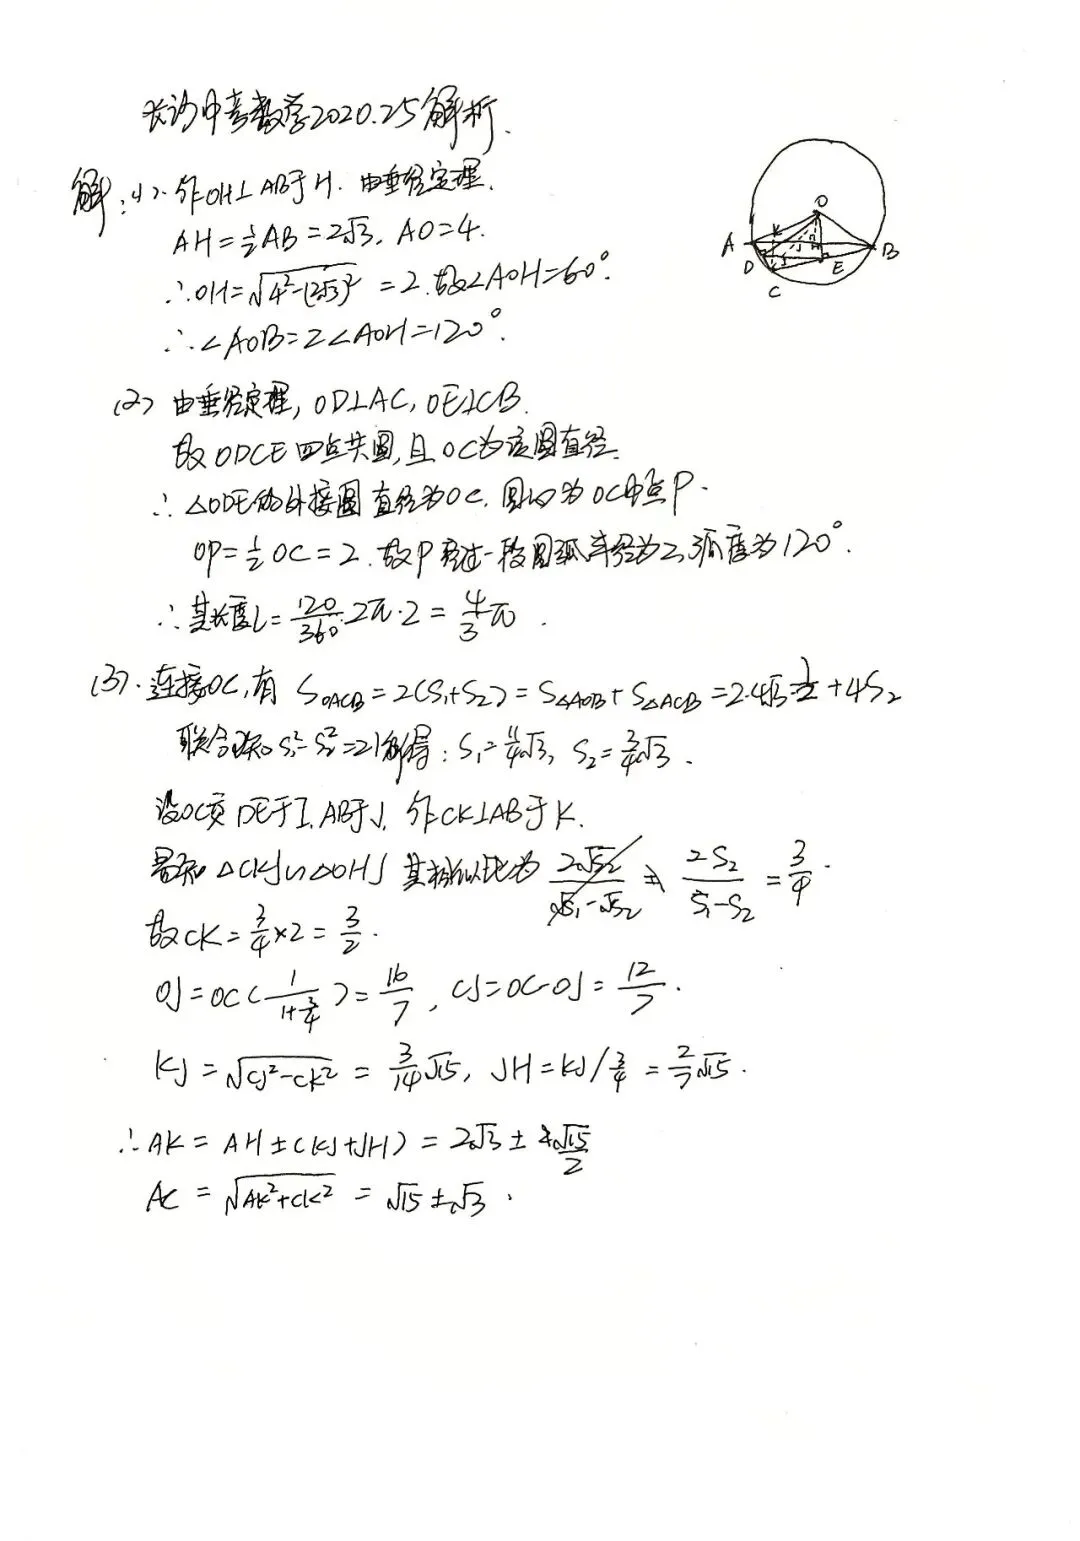 长沙中考数学2020.25解析.
解:(1). 作OH⊥AB于H. 由垂径定理.
AH=½AB=2√3, AO=4.
∴OH=√(4²-(2√3)²) =2.故∠AOH=60°.
∴∠AOB=2∠AOH=120°.
(2) 由垂径定理, OD⊥AC, OE⊥CB.
故ODCE四点共圆,且OC为该圆直径.
∴△ODE的外接圆直径为OC. 圆心为OC中点P.
OP=½OC=2. 故P经过一段圆弧半径为2,弧度为120°.
∴其长度L=120/360·2π·2=4/3π.
(3). 连接OC,有 S_OACB=2(S₁+S₂)=S△AOB+S△ACB=2·4√3·½+4S₂
联合 S₁²-S₂²=21解得: S₁=11/4√3, S₂=3/4√3.
设OC交DE于I, AB于J, 作CK⊥AB于K.
易知 △CKJ∽△OHJ 其相似比为 2S₂/(S₁-S₂)=3/4.
故CK=3/4×2=3/2.
OJ=OC(1/(1+3/4))=16/7, CJ=OC-OJ=12/7.
KJ=√(CJ²-CK²)=3/14√15, JH=KJ/¾=2/7√15.
∴AK=AH±(KJ+JH)=2√3±√15/2
AC=√(AK²+CK²)=√15±√3.
O
A K H B
D I J E
C